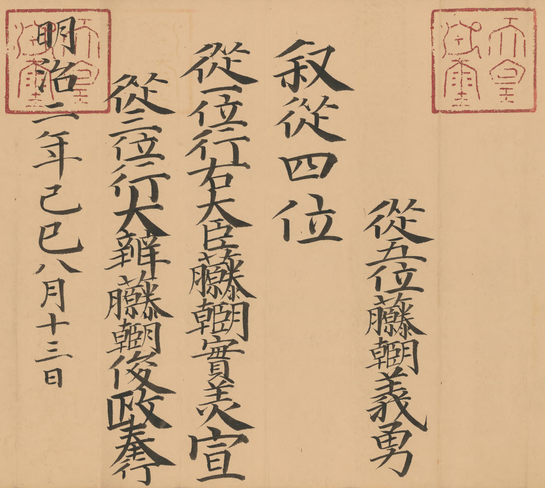 天皇御璽
從五位藤原朝臣義勇
叙從四位
從一位行右大臣藤原朝臣實美宣
從三位行大辨藤原朝臣俊政奉行
明治二年己巳八月十三日
天皇御璽